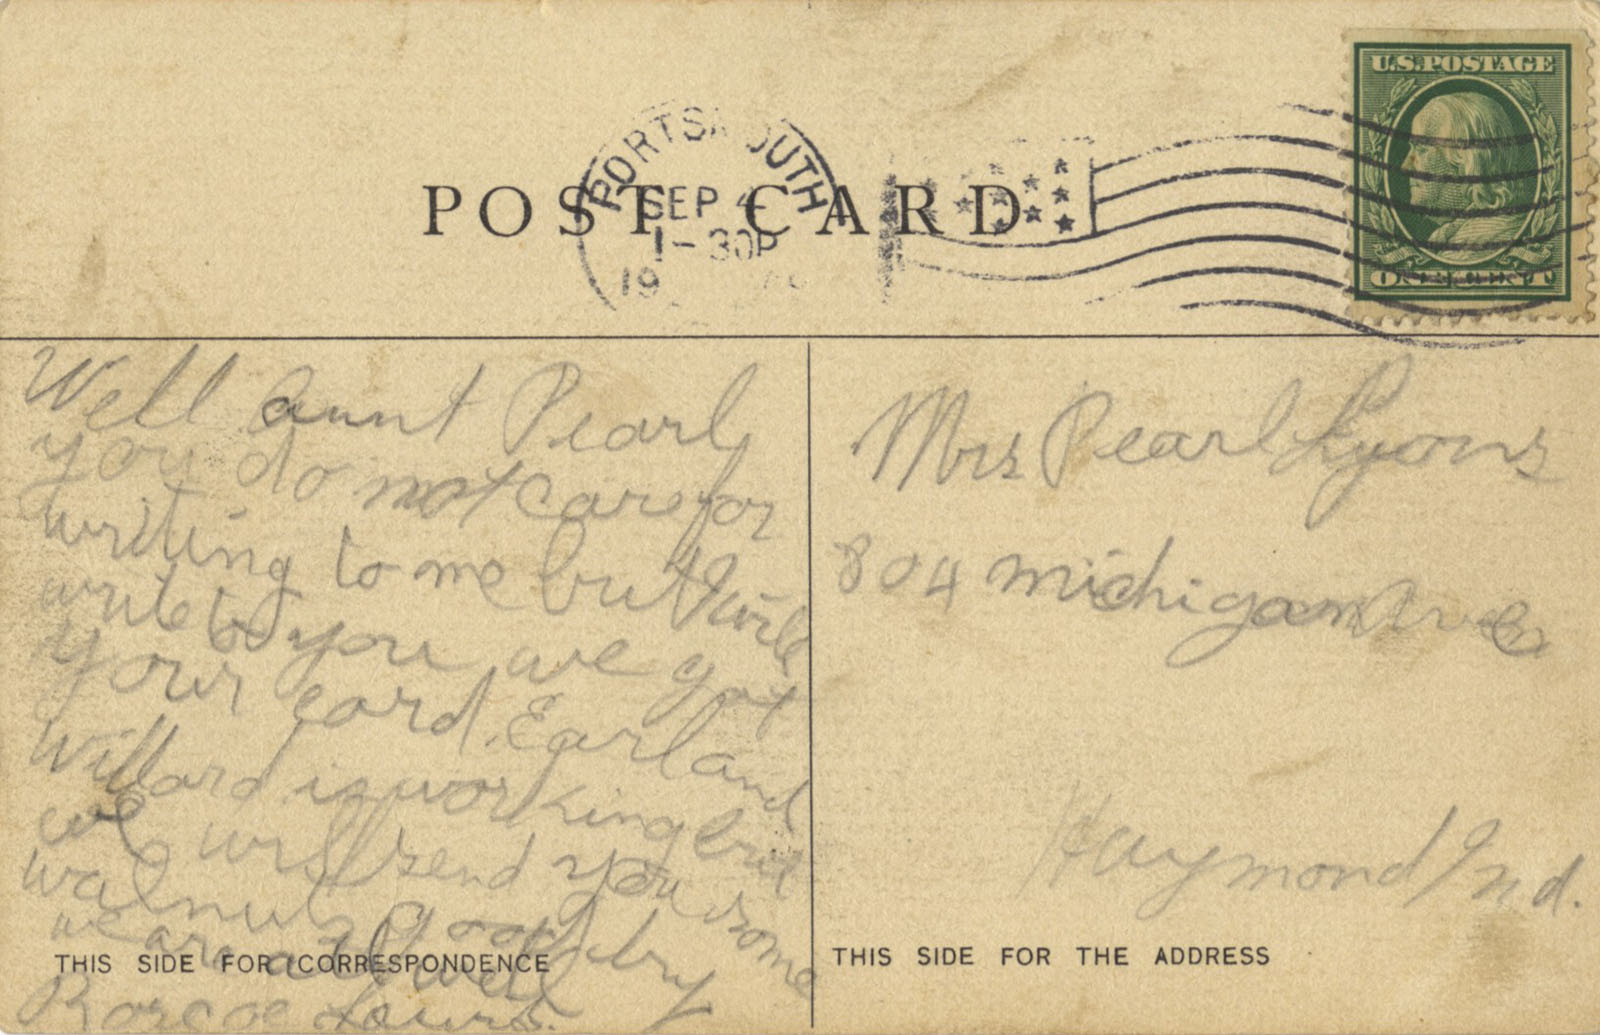 U.S. POSTAGE
ONE CENT
PORTSMOUTH
SEP 4
1-30P
19
POST CARD
Well aunt Pearl
you do not care for
writing to me but I will
write to you we got
your card. Earl and
Willard is working but
we will send you some
walnuts good by
we are all well
Roscoe
THIS SIDE FOR CORRESPONDENCE
Mrs Pearl Lyons
804 Michigan Ave
Haymond Ind.
THIS SIDE FOR THE ADDRESS